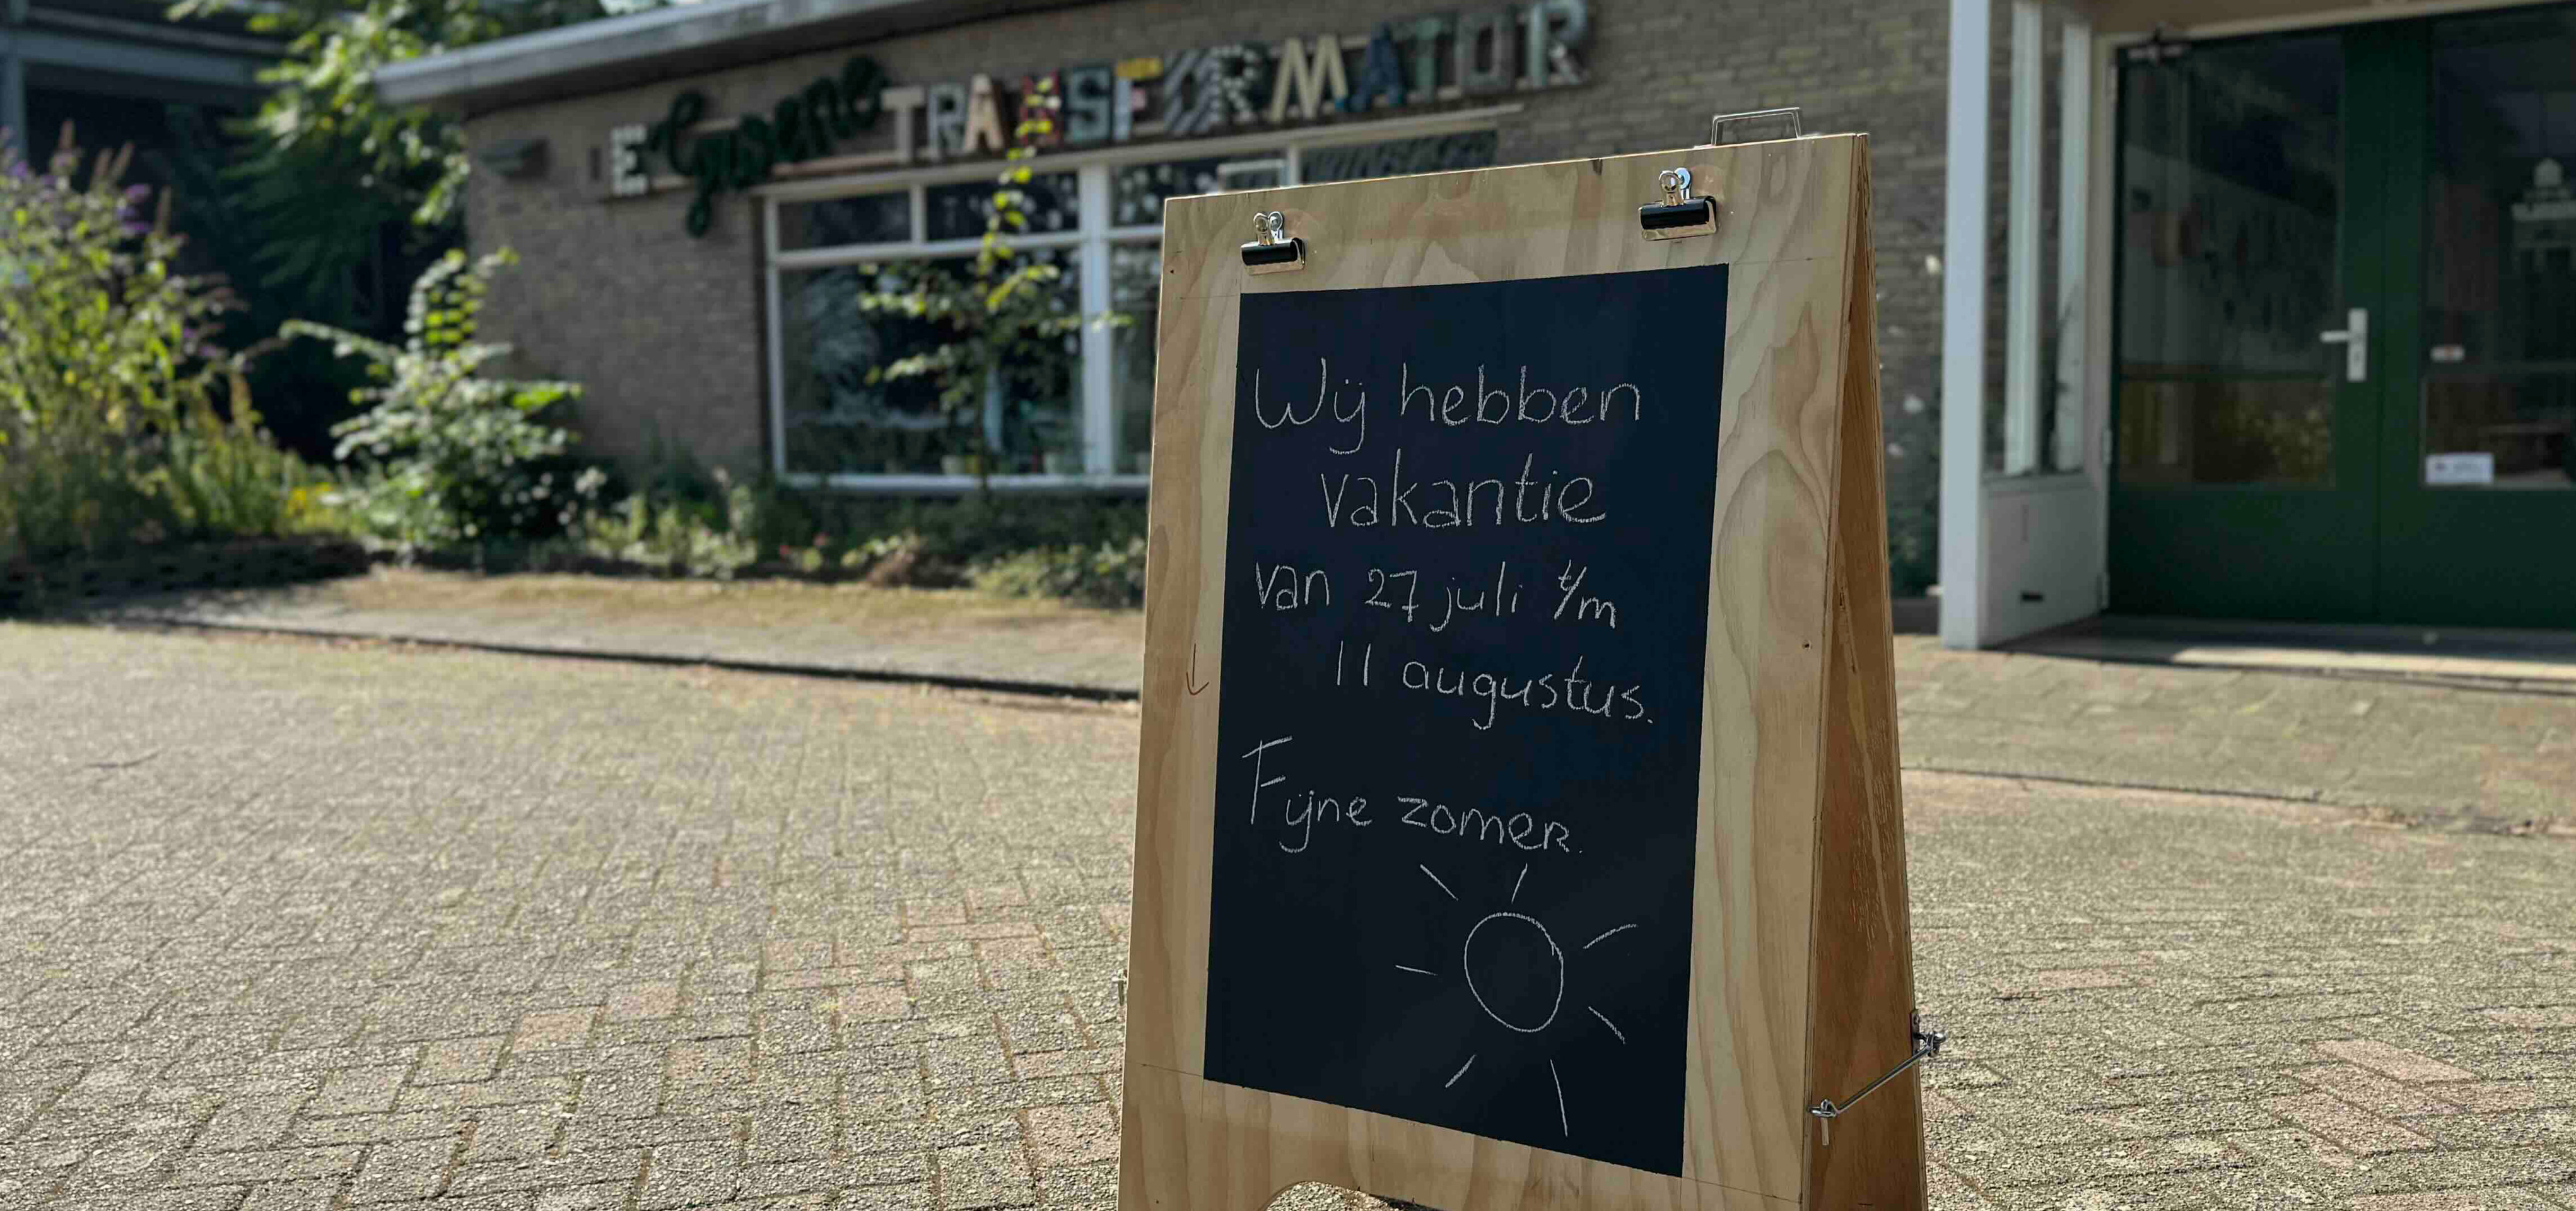 E Groene TRANSFORMATOR
Wij hebben
vakantie
van 27 juli t/m
11 augustus.
Fijne zomer.